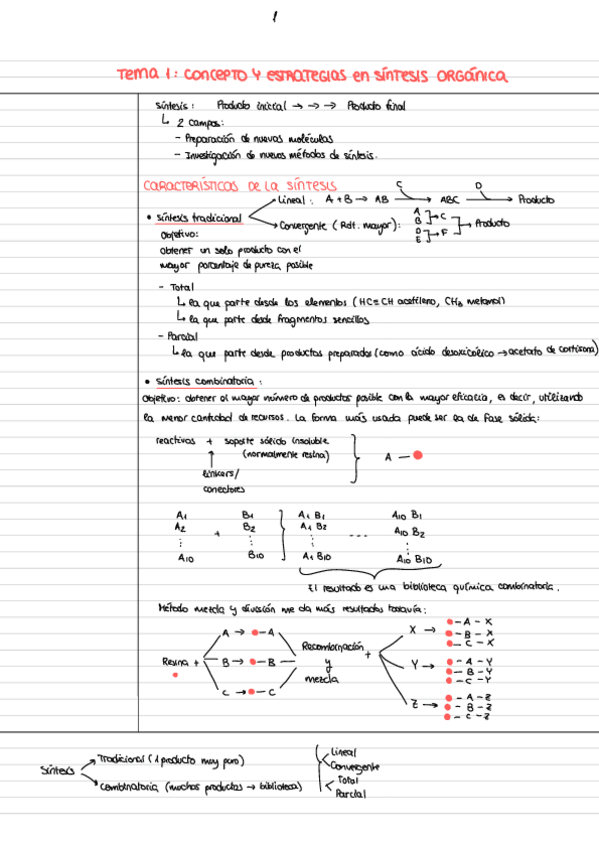 1
TEMA 1: CONCEPTO Y ESTRATEGIAS EN SÍNTESIS ORGÁNICA
Síntesis: Producto inicial → → → Producto final
↳ 2 campos:
- Preparación de nuevas moléculas
- Investigación de nuevos métodos de síntesis.
CARACTERÍSTICAS DE LA SÍNTESIS
Lineal: A + B → AB —C→ ABC —D→ Producto
• Síntesis tradicional
Convergente (Rdt. mayor): A B ]→ C D E ]→ F ]→ Producto
Objetivo:
obtener un solo producto con el
mayor porcentaje de pureza posible
- Total
↳ la que parte desde los elementos (HC≡CH acetileno, CH3 metanol)
↳ la que parte desde fragmentos sencillos
- Parcial
↳ la que parte desde productos preparados (como ácido desoxicólico → acetato de cortisona)
• Síntesis combinatoria:
Objetivo: obtener el mayor número de productos posible con la mayor eficacia, es decir, utilizando
la menor cantidad de recursos. La forma más usada puede ser la de fase sólida:
reactivos + soporte sólido insoluble
(normalmente resina)
A —
linkers/
conectores
A1 B1 A1 B1 A10 B1
A2 + B2 A1 B2 ... A10 B2
⋮ ⋮ ⋮ ⋮
A10 B10 A1 B10 A10 B10
El resultado es una biblioteca química combinatoria.
Método mezcla y división me da más resultados todavía:
Resina +
A → - A
B → - B
C → - C
Recombinación
y
mezcla
+
X →
- A - X
- B - X
- C - X
Y →
- A - Y
- B - Y
- C - Y
Z →
- A - Z
- B - Z
- C - Z
Síntesis
Tradicional (1 producto muy puro)
Combinatoria (muchos productos → biblioteca)
Lineal
Convergente
Total
Parcial